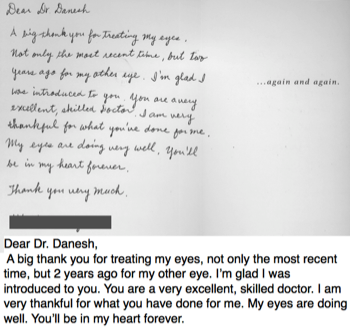 Dear Dr Danesh
A big thank you for treating my eyes.
Not only the most recent time, but two
years ago for my other eye. I'm glad I
was introduced to you. You are a very
excellent, skilled doctor. I am very
thankful for what you've done for me.
My eyes are doing very well. You'll
be in my heart forever.
Thank you very much.
...again and again.
Dear Dr. Danesh,
A big thank you for treating my eyes, not only the most recent
time, but 2 years ago for my other eye. I'm glad I was
introduced to you. You are a very excellent, skilled doctor. I am
very thankful for what you have done for me. My eyes are doing
well. You'll be in my heart forever.